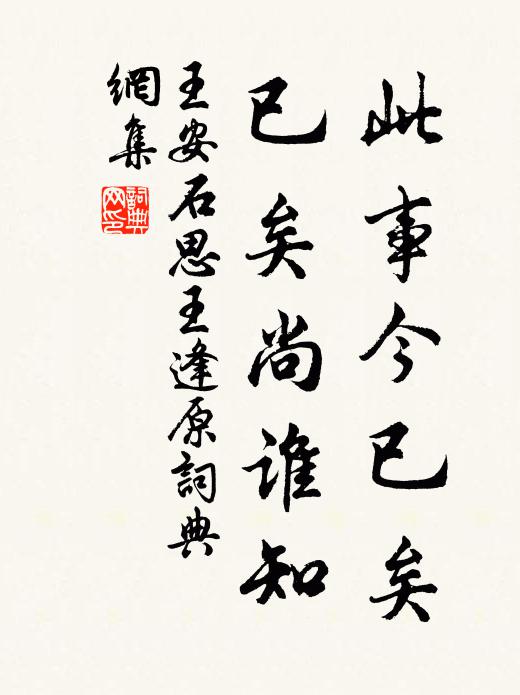 此事今已矣
已矣尚誰知
王安石思王逢原詞典
網集
詞典網印